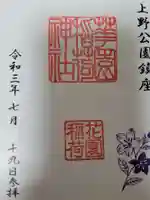 上野公園鎮座
花園
稲荷
神社
花園
稲荷
令和三年七月十九日参拝